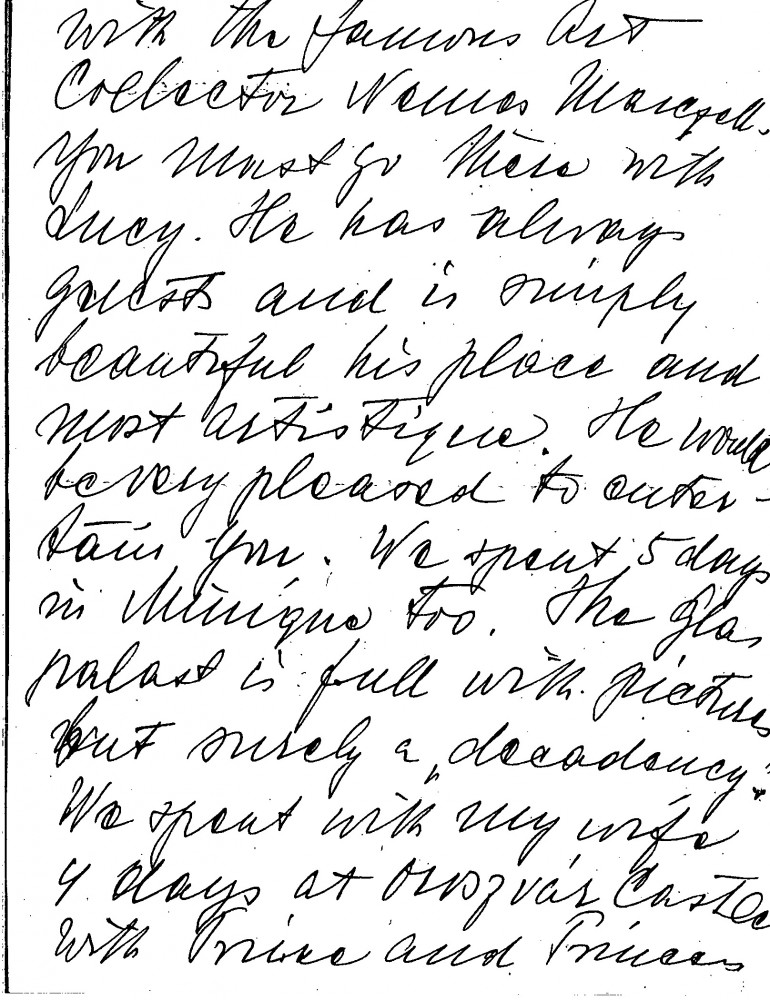 with the famous Art
Collector Nemes Marczell.
You must go there with
Lucy. He has always
guests and is simply
beautiful his place and
most artistique. He would
be very pleased to enter-
tain You. We spent 5 days
in Münique too. The Glas
palast is full with pictures
but surely a „decadency"
We spent with my wife
4 days at Oroszvár Castle
with Prince and Princess